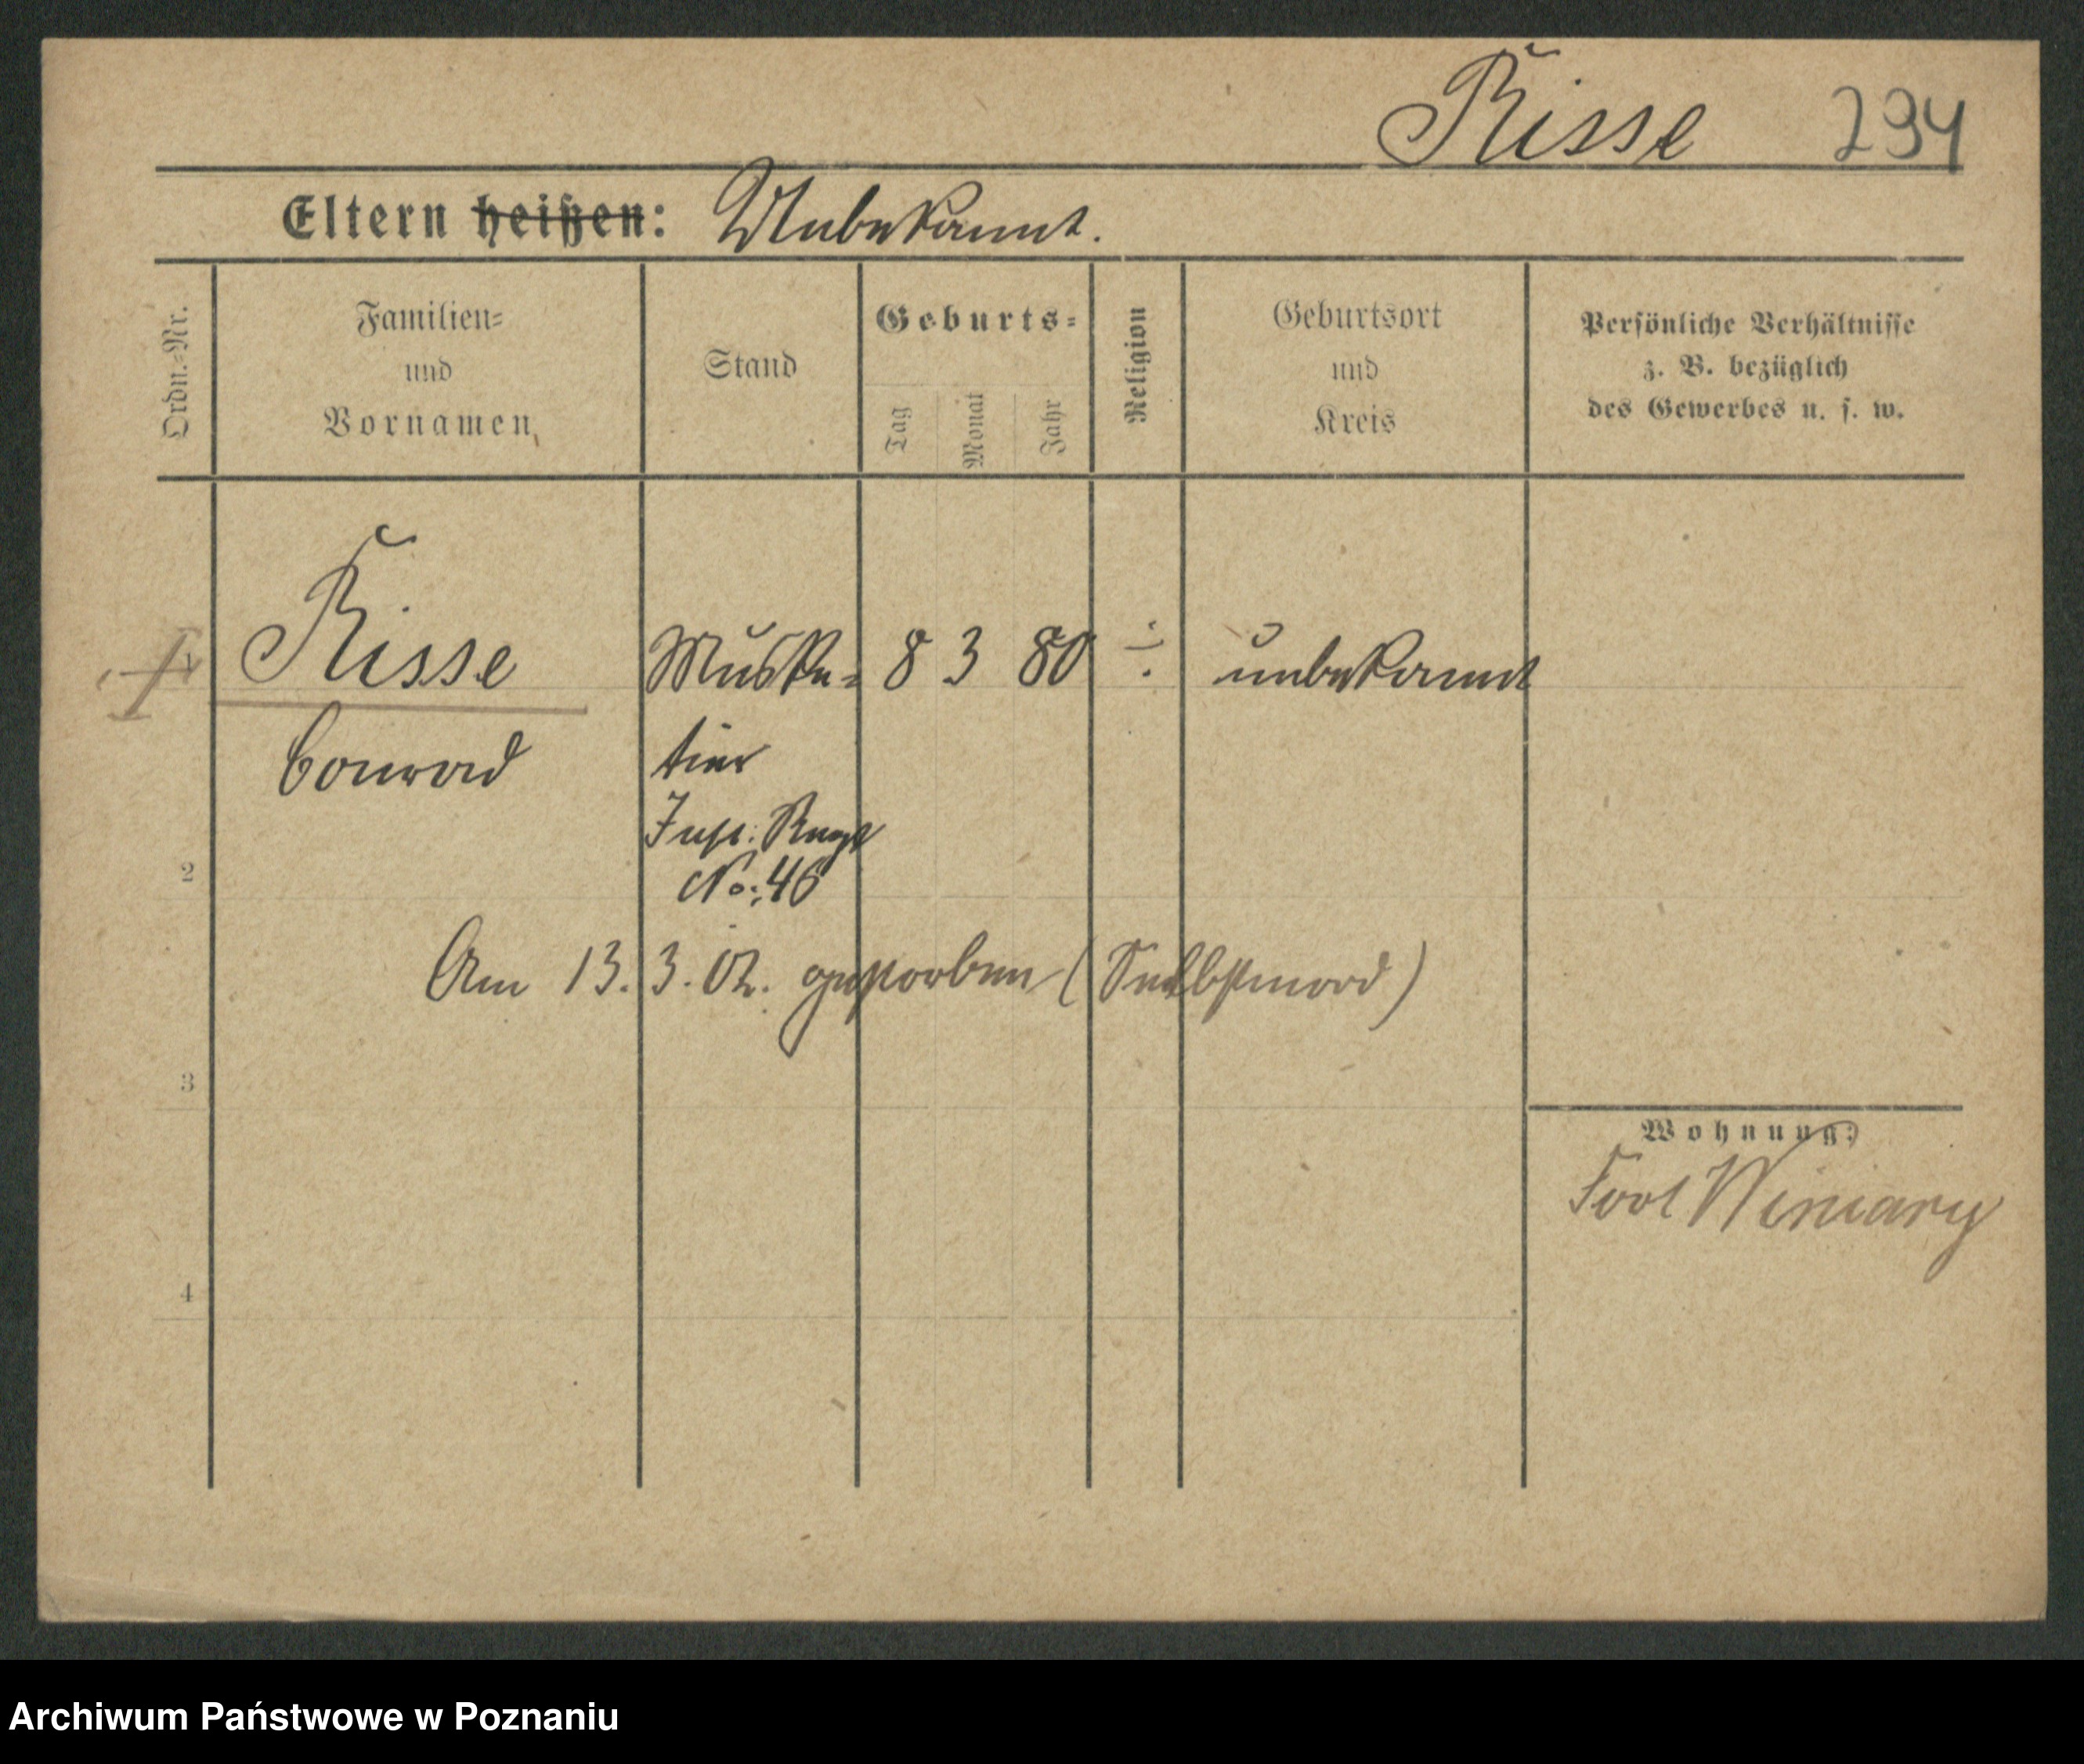 Risse 294
Eltern heißen: Unbekannt.
Ordn.-Nr.
Familien-
und
Vornamen
Stand
Geburts-
Tag
Monat
Jahr
Religion
Geburtsort
und
Kreis
Persönliche Verhältnisse
z. B. bezüglich
des Gewerbes u. s. w.
1 Risse Muske- 8 3 80 ÷ unbekannt
Conrad tier
Inft. Regt
No: 46
2
Am 13. 3. 02. gestorben (Selbstmord)
3
Wohnung:
Fort Winiary
4
Archiwum Państwowe w Poznaniu